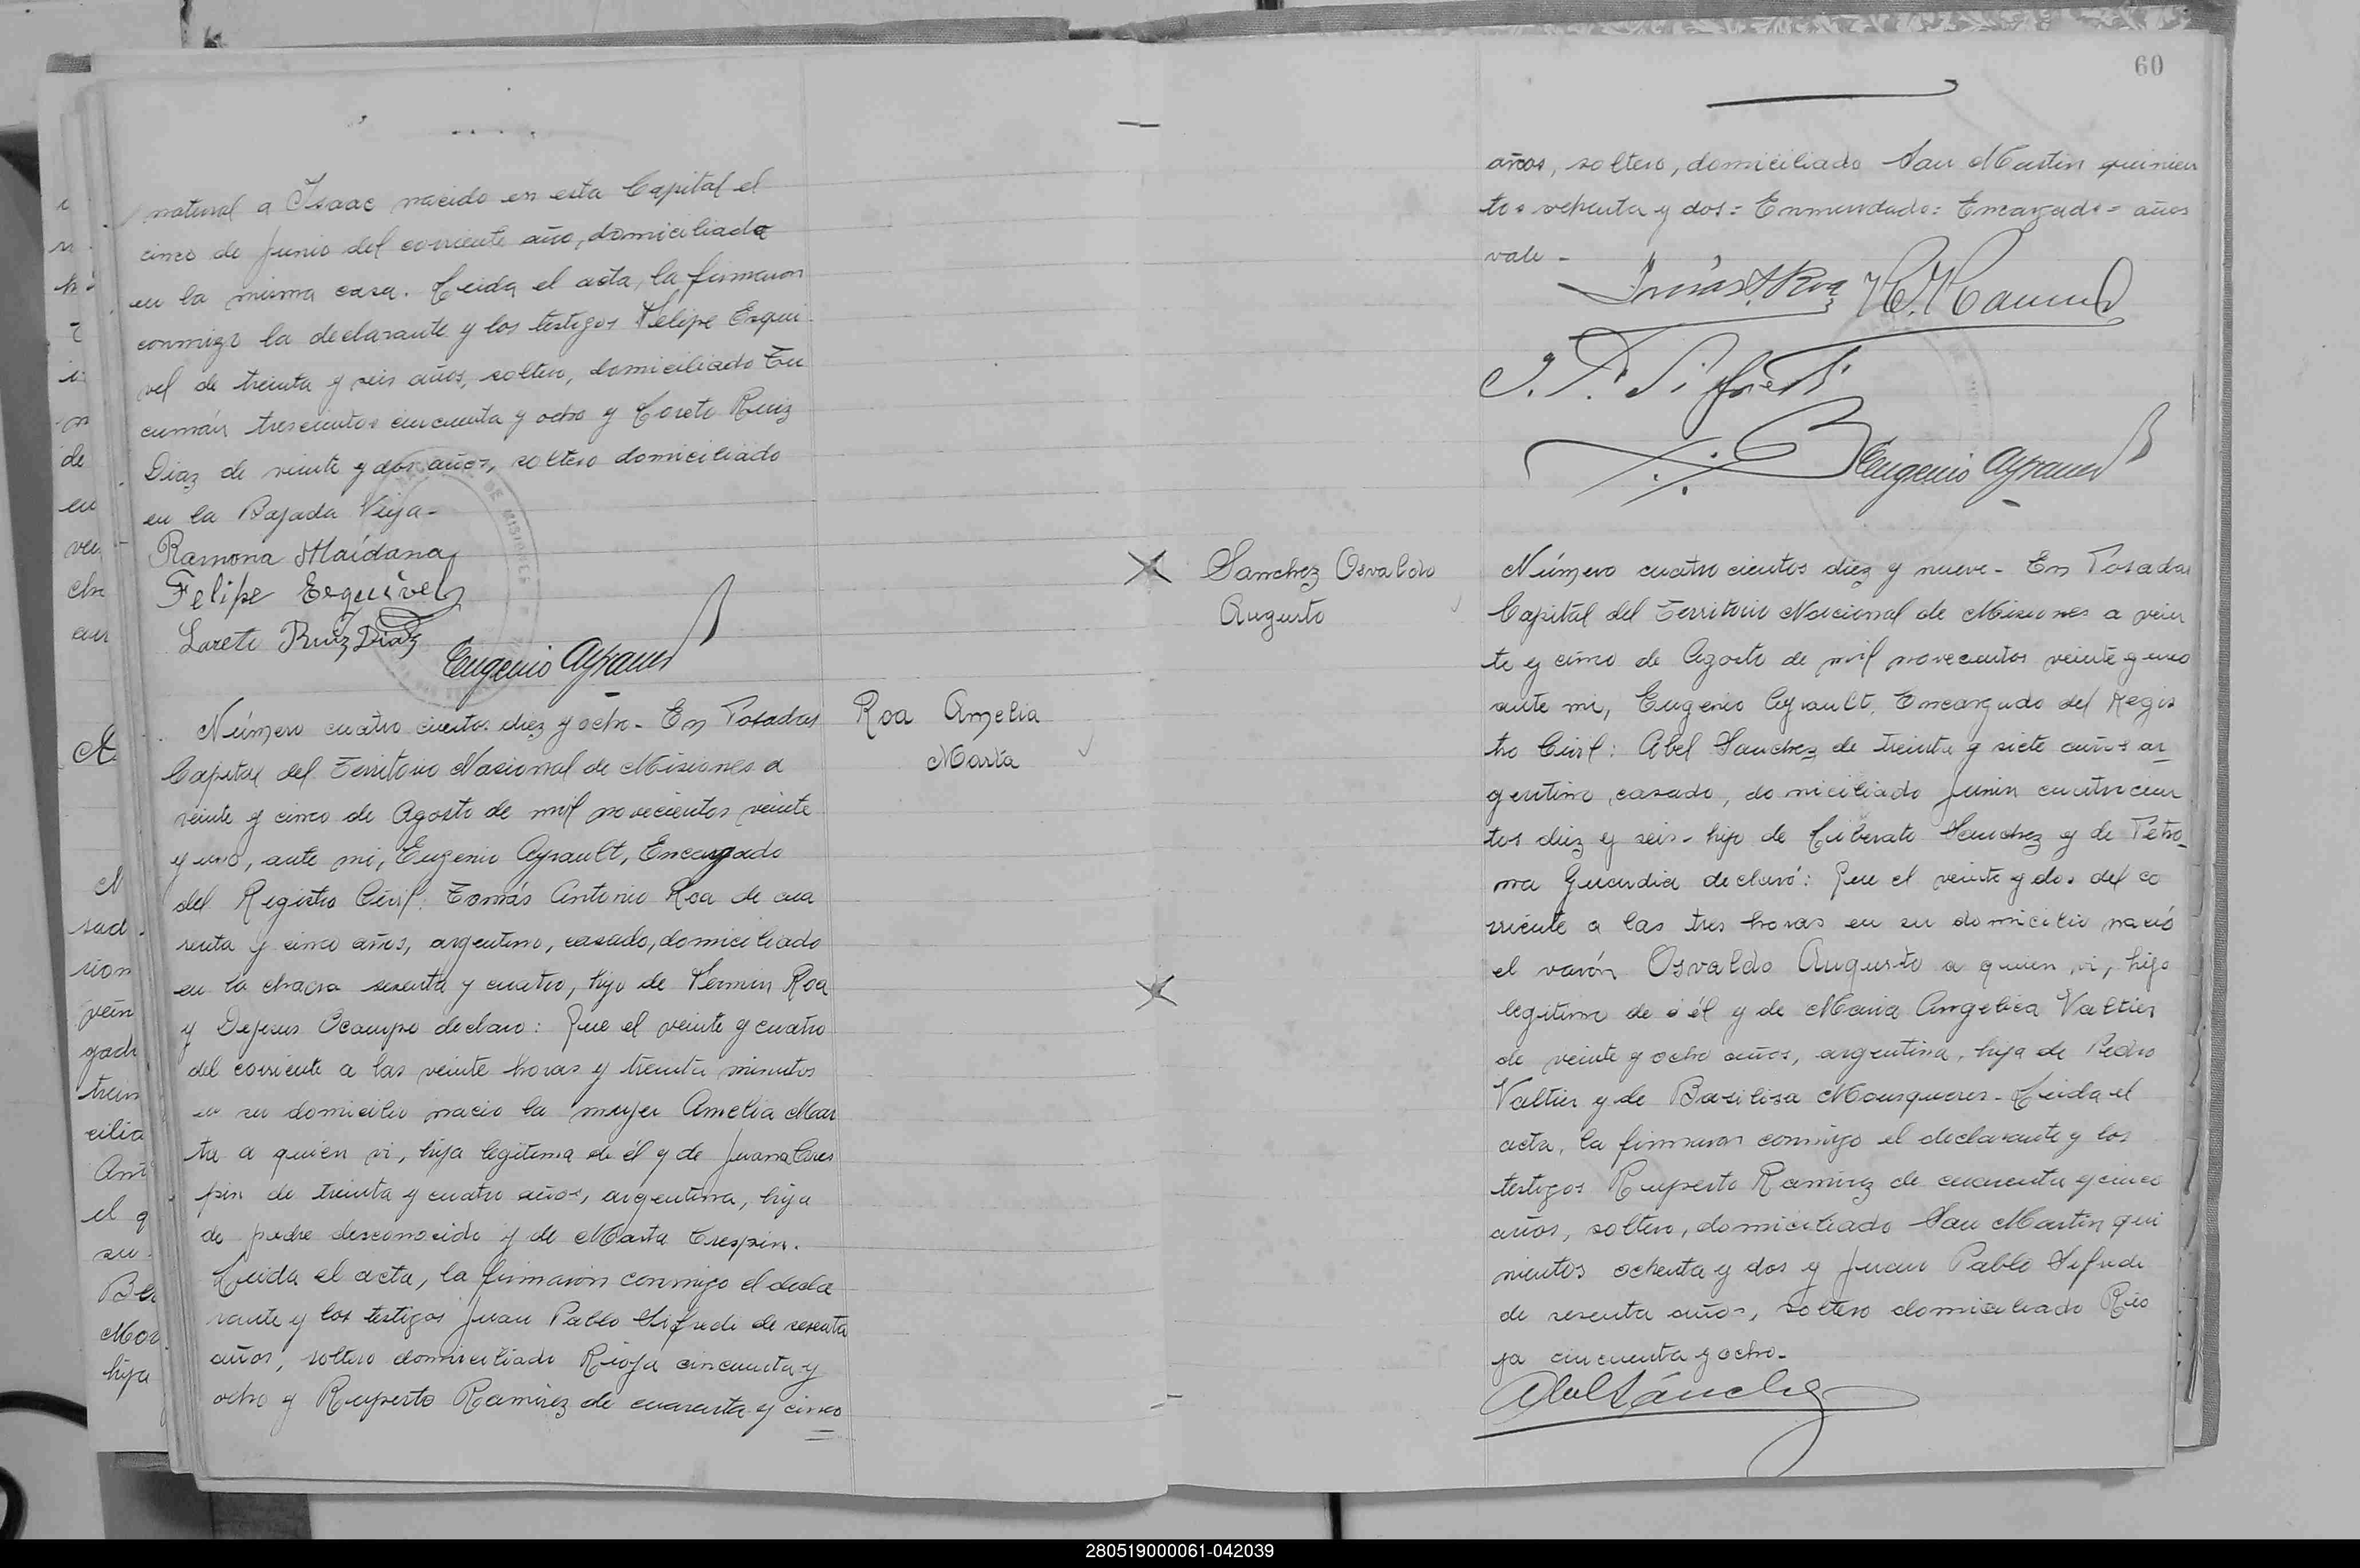 natural a Isaac nacido en esta Capital el
cinco de Junio del corriente año, domiciliada
en la misma casa. Leida el acta, la firmaron
conmigo la declarante y los testigos Felipe Esqui
vel de treinta y seis años, soltero, domiciliado Tu
cumán trescientos cincuenta y ocho y Loreto Ruiz
Diaz de veinte y dos años, soltero domiciliado
en la Bajada Vieja-
Ramona Maídana
Felipe Esquivel
Loreto Ruiz Diaz
Eugenio Ayrault
Número cuatro cientos diez y ocho- En Posadas
Capital del Territorio Nacional de Misiones a
veinte y cinco de Agosto de mil novecientos veinte
y uno, ante mi, Eugenio Ayrault, Encargado
del Registro Civil: Tomás Antonio Roa de cua
renta y cinco años, argentino, casado, domiciliado
en la chacra sesenta y cuatro, hijo de Fermin Roa
y Dejesus Ocampo declaro: Que el veinte y cuatro
del corriente a las veinte horas y treinta minutos
en su domicilio nacio la mujer Amelia Mar
ta a quien vi, hija legitima de él y de Juana Cres
pin de treinta y cuatro años, argentina, hija
de padre desconocido y de Marta Crespin.
Leida el acta, la firmaron conmigo el decla
rante y los testigos Juan Pablo Sifredi de sesenta
años, soltero domiciliado Rioja cincuenta y
ocho y Ruperto Ramirez de cuarenta y cinco
Roa Amelia
Marta
60
años, soltero, domiciliado San Martin quinien
tos ochenta y dos= Enmendado: Encargado= años
vale-
Tomás A. Roa
J. P. Sifredi
Eugenio Ayrault
Sanchez Osvaldo
Augusto
Número cuatro cientos diez y nueve- En Posadas
Capital del Territorio Nacional de Misiones a vein
te y cinco de Agosto de mil novecientos veinte y uno
ante mi, Eugenio Ayrault, Encargado del Regis
tro Civil: Abel Sanchez de treinta y siete años ar
gentino, casado, domiciliado Junin cuatrocien
tos diez y seis- hijo de Liberato Sanchez y de Petro
na Guardia declaró: Que el veinte y dos del co
rriente a las tres horas en su domicilio nació
el varón Osvaldo Augusto a quien vi, hijo
legitimo de él y de Maria Angelica Valtier
de veinte y ocho años, argentina, hija de Pedro
Valtier y de Basilisa Mousqueres- Leida el
acta, la firmaron conmigo el declarante y los
testigos Ruperto Ramirez de cuarenta y cinco
años, soltero, domiciliado San Martin qui
nientos ochenta y dos y Juan Pablo Sifredi
de sesenta años, soltero domiciliado Rio
ja cincuenta y ocho-
Abel Sánchez
280519000061-042039